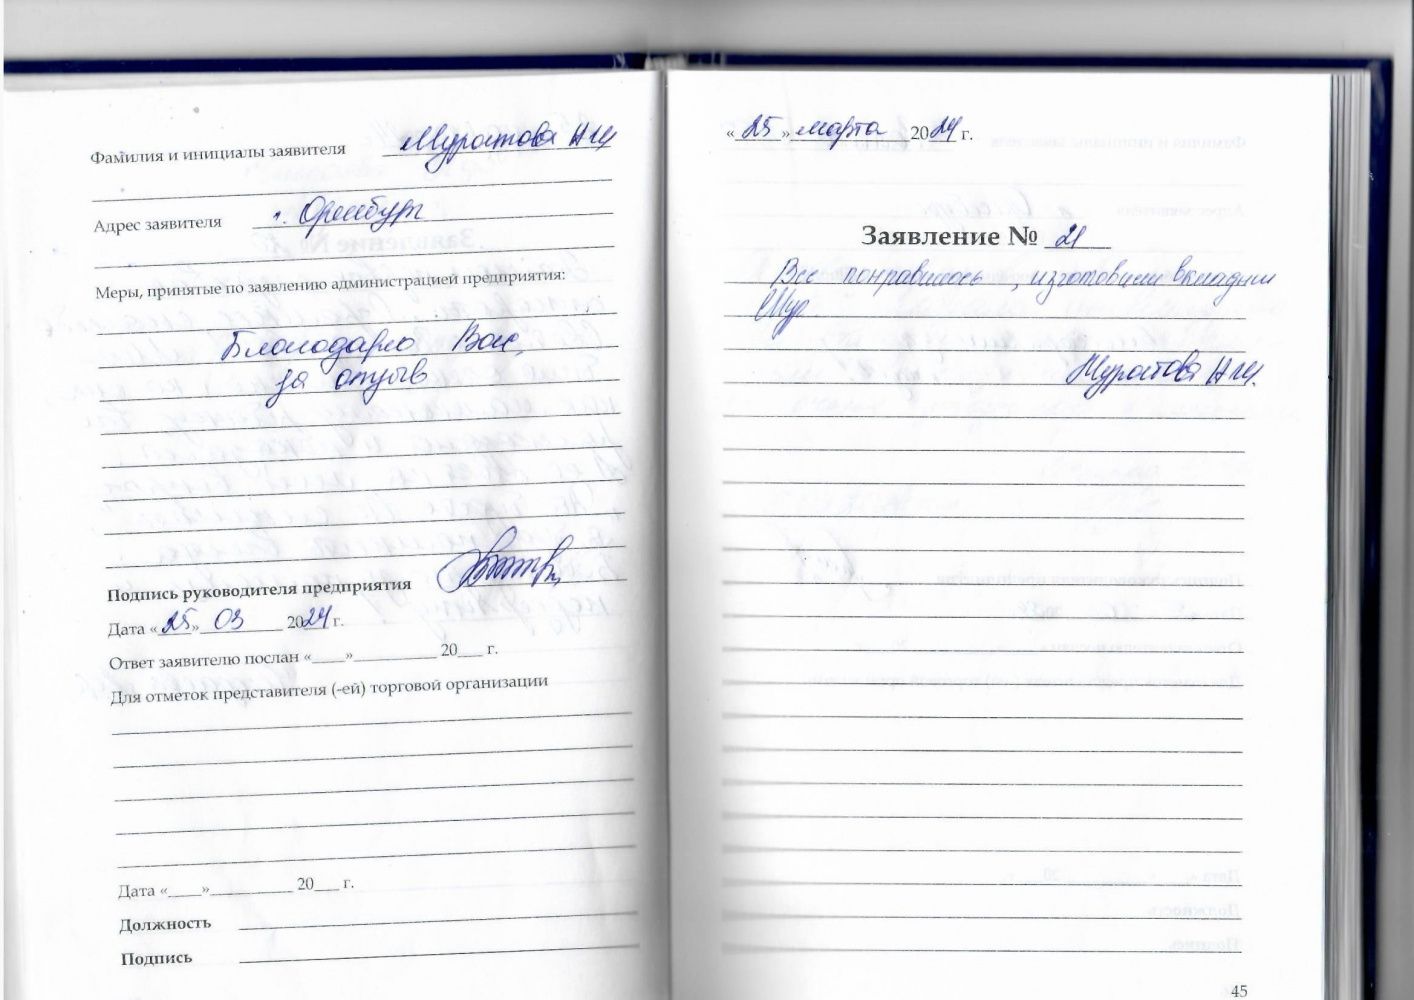 Фамилия и инициалы заявителя Муратова Н.Ш.
Адрес заявителя г. Оренбург
Меры, принятые по заявлению администрацией предприятия:
Благодарю Вас,
за отзыв
Подпись руководителя предприятия
Дата «25» 03 2024 г.
Ответ заявителю послан «____»__________ 20___ г.
Для отметок представителя (-ей) торговой организации
Дата «____»__________ 20___ г.
Должность
Подпись
«25» марта 2024 г.
Заявление № 21
Все понравилось, изготовили вкладыши
Муратова
45